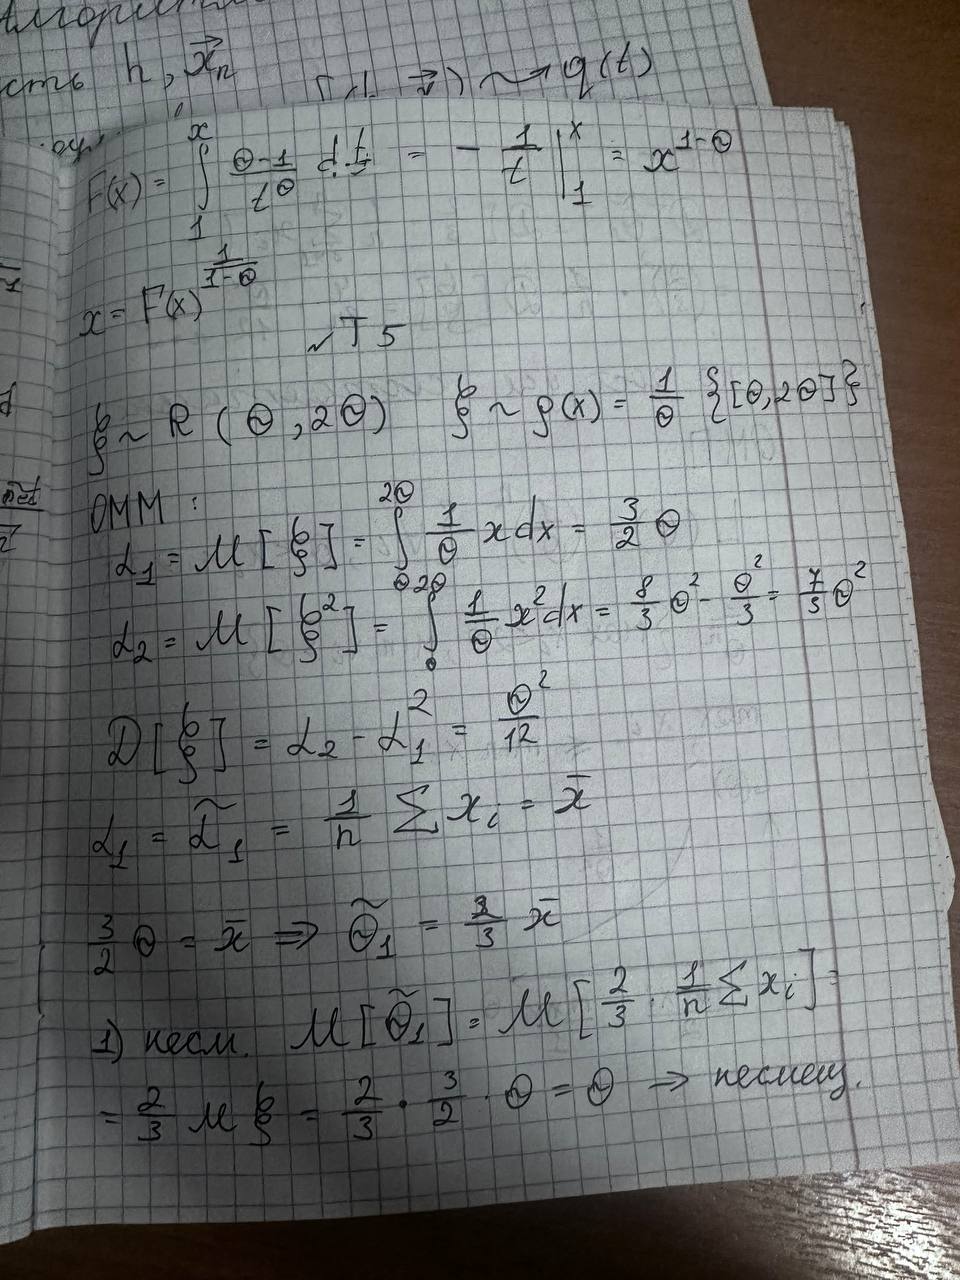 Алгоритм
сть n, x⃗ₙ
q(t)
F(x) = ∫₁ˣ (θ-1)/t^θ dt = - 1/t |₁ˣ = x^(1-θ)
x = F(x)^(1/(1-θ))
√T 5
ξ ~ R (θ, 2θ) ξ ~ ρ(x) = 1/θ {[θ, 2θ]}
ОММ :
α₁ = M [ξ] = ∫_θ^(2θ) 1/θ x dx = 3/2 θ
α₂ = M [ξ²] = ∫_θ^(2θ) 1/θ x² dx = 8/3 θ² - θ²/3 = 7/3 θ²
D [ξ] = α₂ - α₁² = θ²/12
α₁ = α̃₁ = 1/n Σ xᵢ = x̄
3/2 θ = x̄ ⇒ θ̃₁ = 2/3 x̄
1) несм. M [θ̃₁] = M [2/3 · 1/n Σ xᵢ] =
= 2/3 M ξ = 2/3 · 3/2 · θ = θ → несмещ.